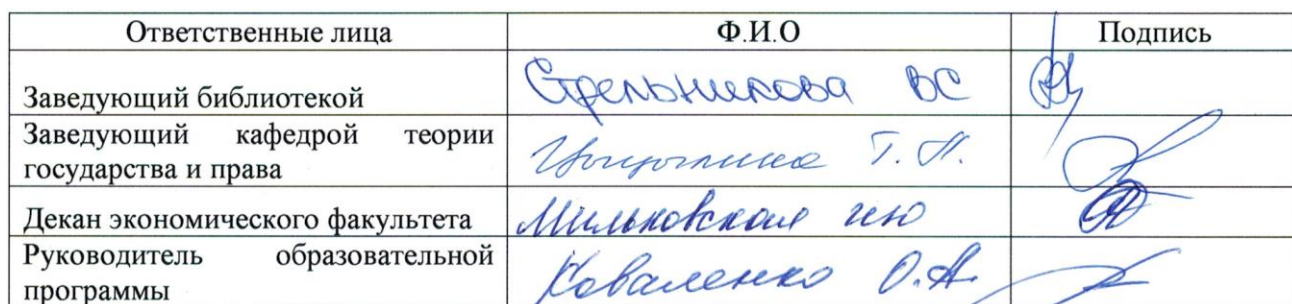 Ответственные лица Ф.И.О Подпись
Заведующий библиотекой Стрельникова ВС
Заведующий кафедрой теории
государства и права Т. П.
Декан экономического факультета Мильковская
Руководитель образовательной
программы Коваленко О.А.